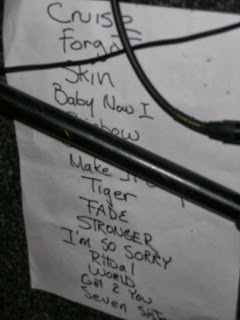 Cruise
Skin
Baby Now I
Make
Tiger
FADE
STRONGER
I'm SO SORRY
Ritual
WORLD
Girl 2 You
Seven